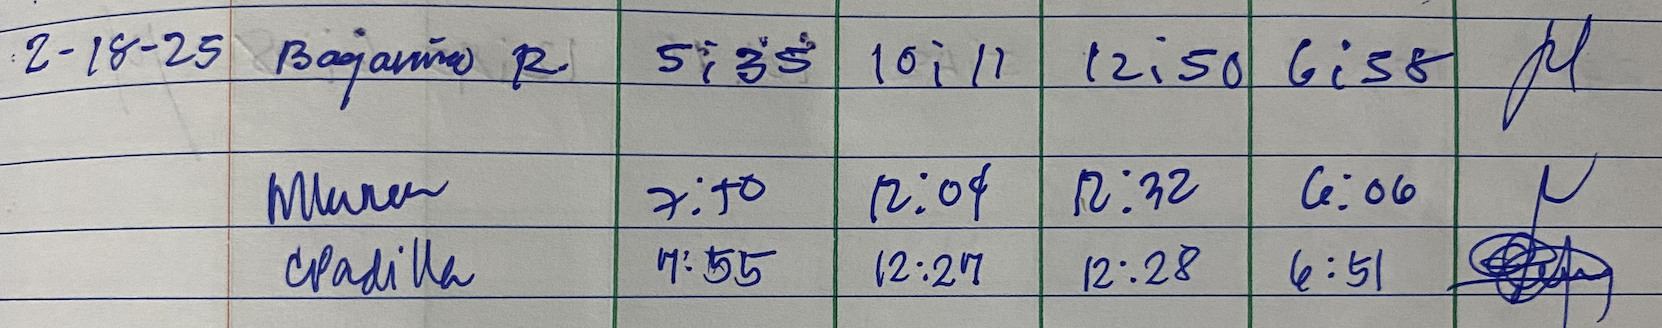 2-18-25 Bagariño R. 5:35 10:11 12:50 6:58
7:50 12:04 12:32 6:06
CPadilla 7:55 12:27 12:28 6:51